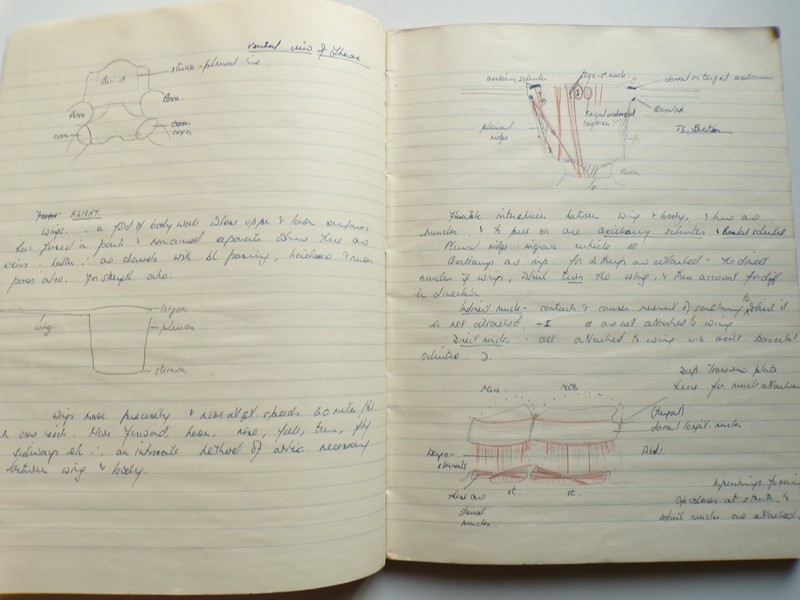 Ventral view of Thorax
sterno-pleural line.
Coxa
Coxa
Coxa
Coxa
FLIGHT.
Wings. ∴ a fold of body wall. Where upper & lower surfaces
has fused in parts & remained separate where there are
veins ∴ latter ∴ are channels with bl. passing, tracheae & nerves
pass also. For strength also.
tergum
wing.
pleuron
sternum
Wings move precisely & some at speeds 60 miles/hr.
in some insects. Move forward, hover, rise, fall, turn, fly
sideways etc ∴ an intricate method of necessary
between wing & body.
axillary sclerites
tergo-st. muscle
dorsal or tergal
pleural
ridges
T.S. Section
Flexible interspace between wing & body, & here are
muscles, & to pull on are axillary sclerites & basal sclerites
Pleural ridge - ingrow cuticle
Axillaries are imp. for 2 things are attached - the direct
muscles of wings, which turn the wing, & thus account for diff.
in direction
Indirect muscle - contracts & causes movement of something to which it
is not attached, - I are not attached to wing
Direct muscles - are attached to wing via axill. basal
sclerites. D.
Deep Transverse plate
here for muscle attachment
Meso.
Meta.
(tergal)
dorsal longit. muscles
Tergo-
sternals
Abd.
st.
st.
these are
sternal
muscles.
ingrowings forming
apodemes or struts to
which muscles are attached.